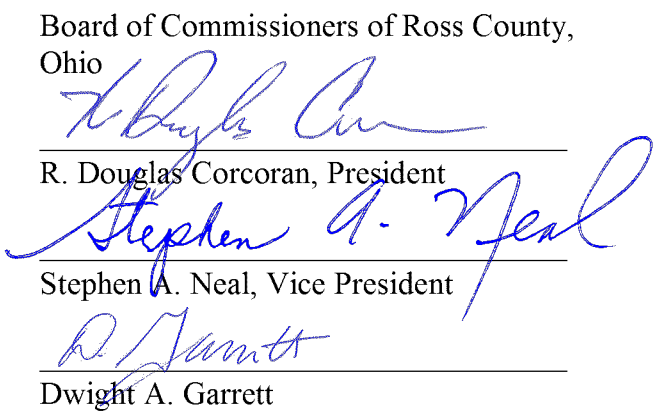 Board of Commissioners of Ross County,
Ohio
R. Douglas Corcoran
R. Douglas Corcoran, President
Stephen A. Neal
Stephen A. Neal, Vice President
D. Garrett
Dwight A. Garrett